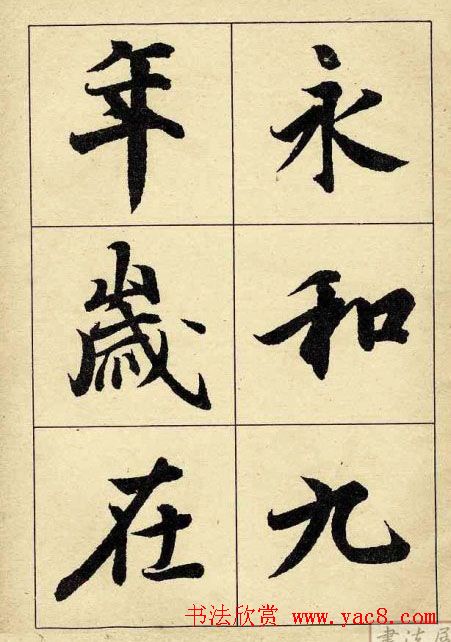 永和九
年歲在
书法欣赏 www.yac8.com
书法屋